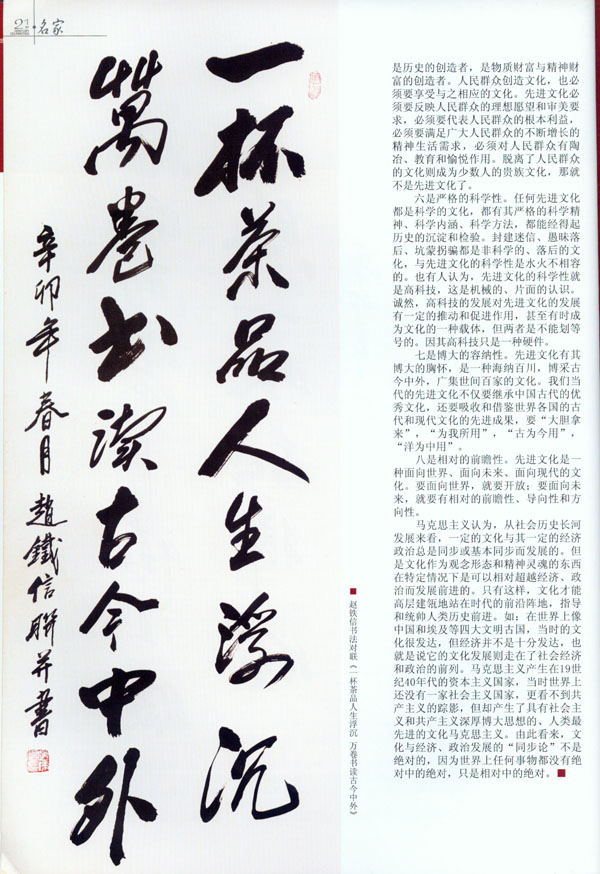 21·名家
一杯茶品人生浮沉
萬卷书读古今中外
辛卯年春月 趙鐵信聯并書
■ 赵铁信书法对联《一杯茶品人生浮沉 万卷书读古今中外》
是历史的创造者，是物质财富与精神财
富的创造者。人民群众创造文化，也必
须要享受与之相应的文化。先进文化必
须要反映人民群众的理想愿望和审美要
求，必须要代表人民群众的根本利益，
必须要满足广大人民群众的不断增长的
精神生活需求，必须对人民群众有陶
冶、教育和愉悦作用。脱离了人民群众
的文化则成为少数人的贵族文化，那就
不是先进文化了。
六是严格的科学性。任何先进文化
都是科学的文化，都有其严格的科学精
神、科学内涵、科学方法，都能经得起
历史的沉淀和检验。封建迷信、愚昧落
后、坑蒙拐骗都是非科学的、落后的文
化，与先进文化的科学性是水火不相容
的。也有人认为，先进文化的科学性就
是高科技，这是机械的、片面的认识。
诚然，高科技的发展对先进文化的发展
有一定的推动和促进作用，甚至有时成
为文化的一种载体，但两者是不能划等
号的。因其高科技只是一种硬件。
七是博大的容纳性。先进文化有其
博大的胸怀，是一种海纳百川，博采古
今中外，广集世间百家的文化。我们当
代的先进文化不仅要继承中国古代的优
秀文化，还要吸收和借鉴世界各国的古
代和现代文化的先进成果，要“大胆拿
来”，“为我所用”，“古为今用”，
“洋为中用”。
八是相对的前瞻性。先进文化是一
种面向世界、面向未来、面向现代的文
化。要面向世界，就要开放；要面向未
来，就要有相对的前瞻性、导向性和方
向性。
马克思主义认为，从社会历史长河
发展来看，一定的文化与其一定的经济
政治总是同步或基本同步而发展的。但
是文化作为观念形态和精神灵魂的东西
在特定情况下是可以相对超越经济、政
治而发展前进的。只有这样，文化才能
高层建瓴地站在时代的前沿阵地，指导
和统帅人类历史前进。如：在世界上像
中国和埃及等四大文明古国，当时的文
化很发达，但经济并不是十分发达，也
就是说它的文化发展则走在了社会经济
和政治的前列。马克思主义产生在19世
纪40年代的资本主义国家，当时世界上
还没有一家社会主义国家，更看不到共
产主义的踪影，但却产生了具有社会主
义和共产主义深厚博大思想的、人类最
先进的文化马克思主义。由此看来，文
化与经济、政治发展的“同步论”不是
绝对的，因为世界上任何事物都没有绝
对中的绝对，只是相对中的绝对。■